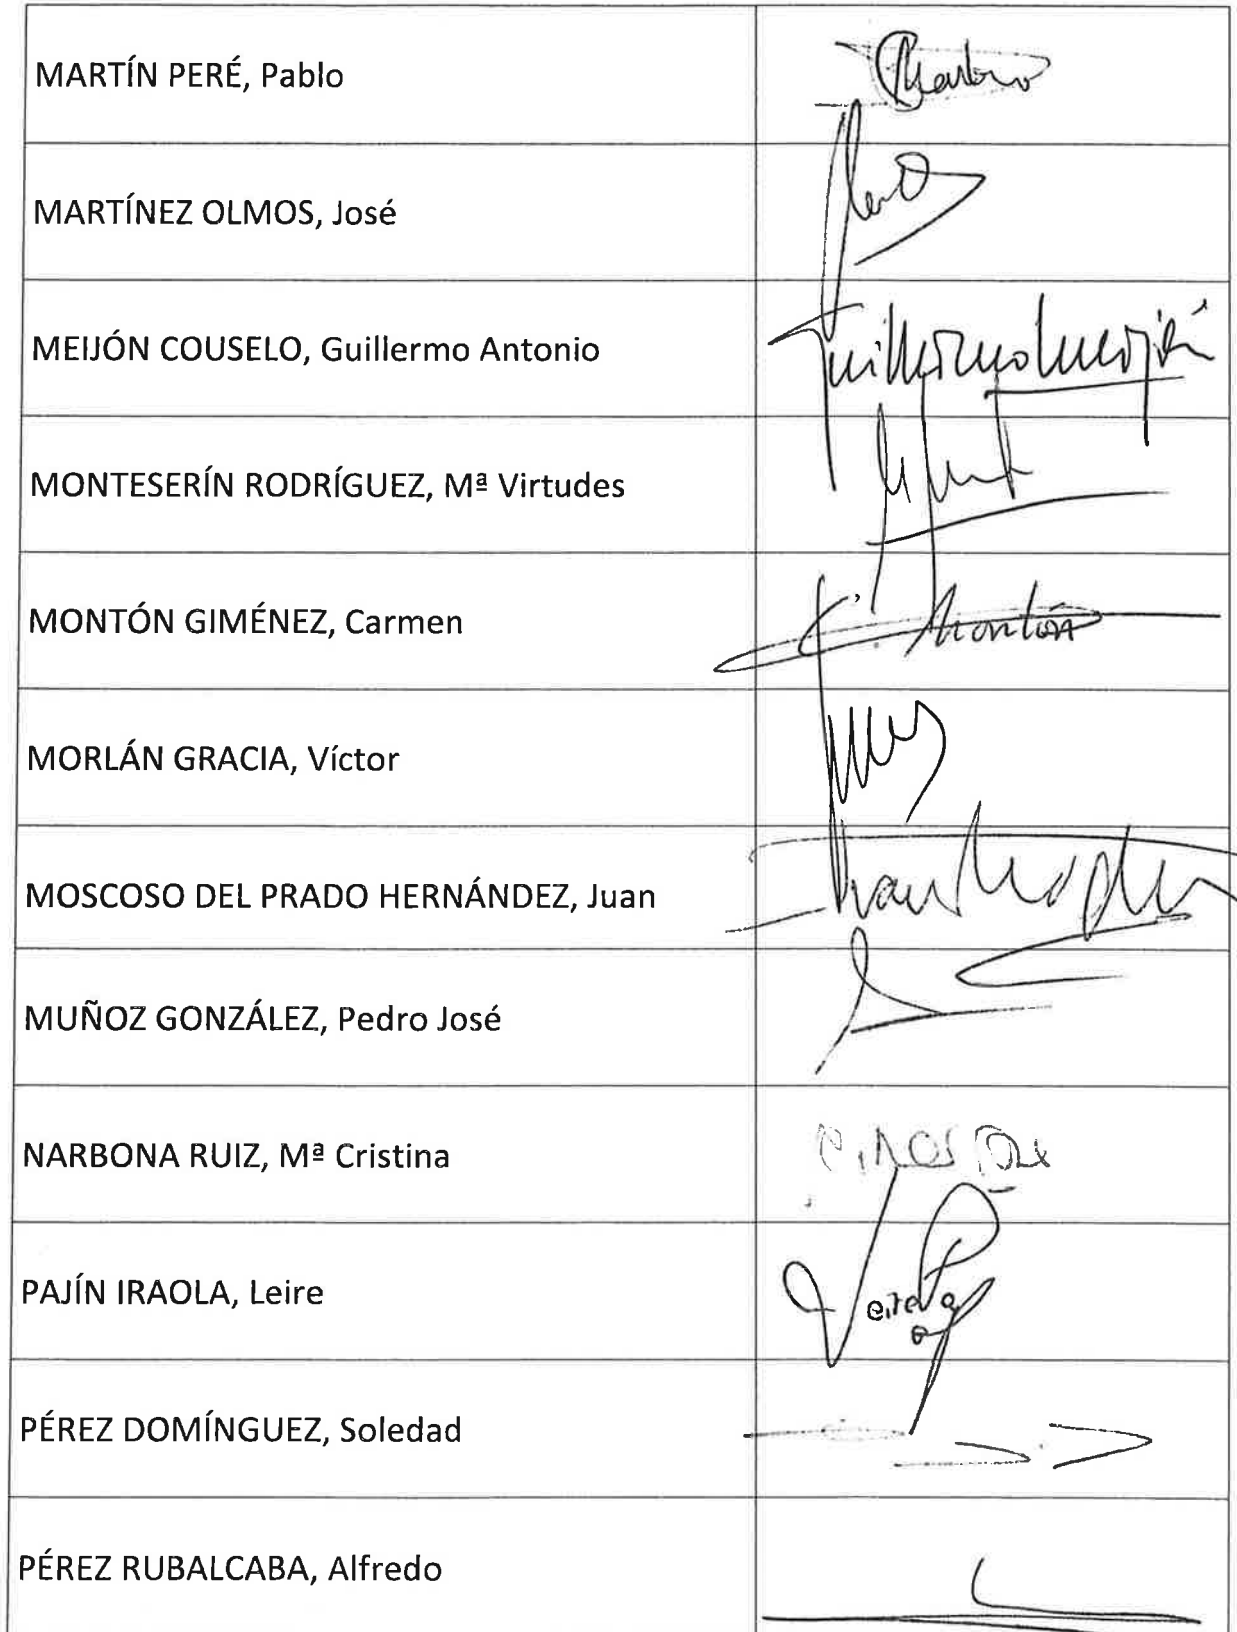 MARTÍN PERÉ, Pablo
MARTÍNEZ OLMOS, José
MEIJÓN COUSELO, Guillermo Antonio
Guillermo Meijón
MONTESERÍN RODRÍGUEZ, Mª Virtudes
MONTÓN GIMÉNEZ, Carmen
C. Montón
MORLÁN GRACIA, Víctor
MOSCOSO DEL PRADO HERNÁNDEZ, Juan
MUÑOZ GONZÁLEZ, Pedro José
NARBONA RUIZ, Mª Cristina
PAJÍN IRAOLA, Leire
Leire
PÉREZ DOMÍNGUEZ, Soledad
PÉREZ RUBALCABA, Alfredo